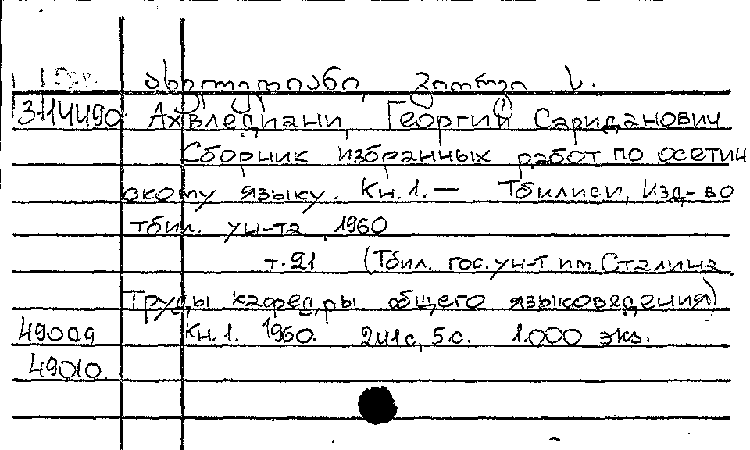 ახვლედიანი, გიორგი ს.
3114490 Ахвледиани, Георгий Сариданович
Сборник избранных работ по осетин
скому языку. Кн. 1. — Тбилиси, Изд-во
Тбил. ун-та, 1960
т. 21 (Тбил. гос. ун-т им. Сталина.
Труды кафедры общего языковедения)
49009 Кн. 1. 1960. 241 с, 5 с. 1.000 экз.
49010.